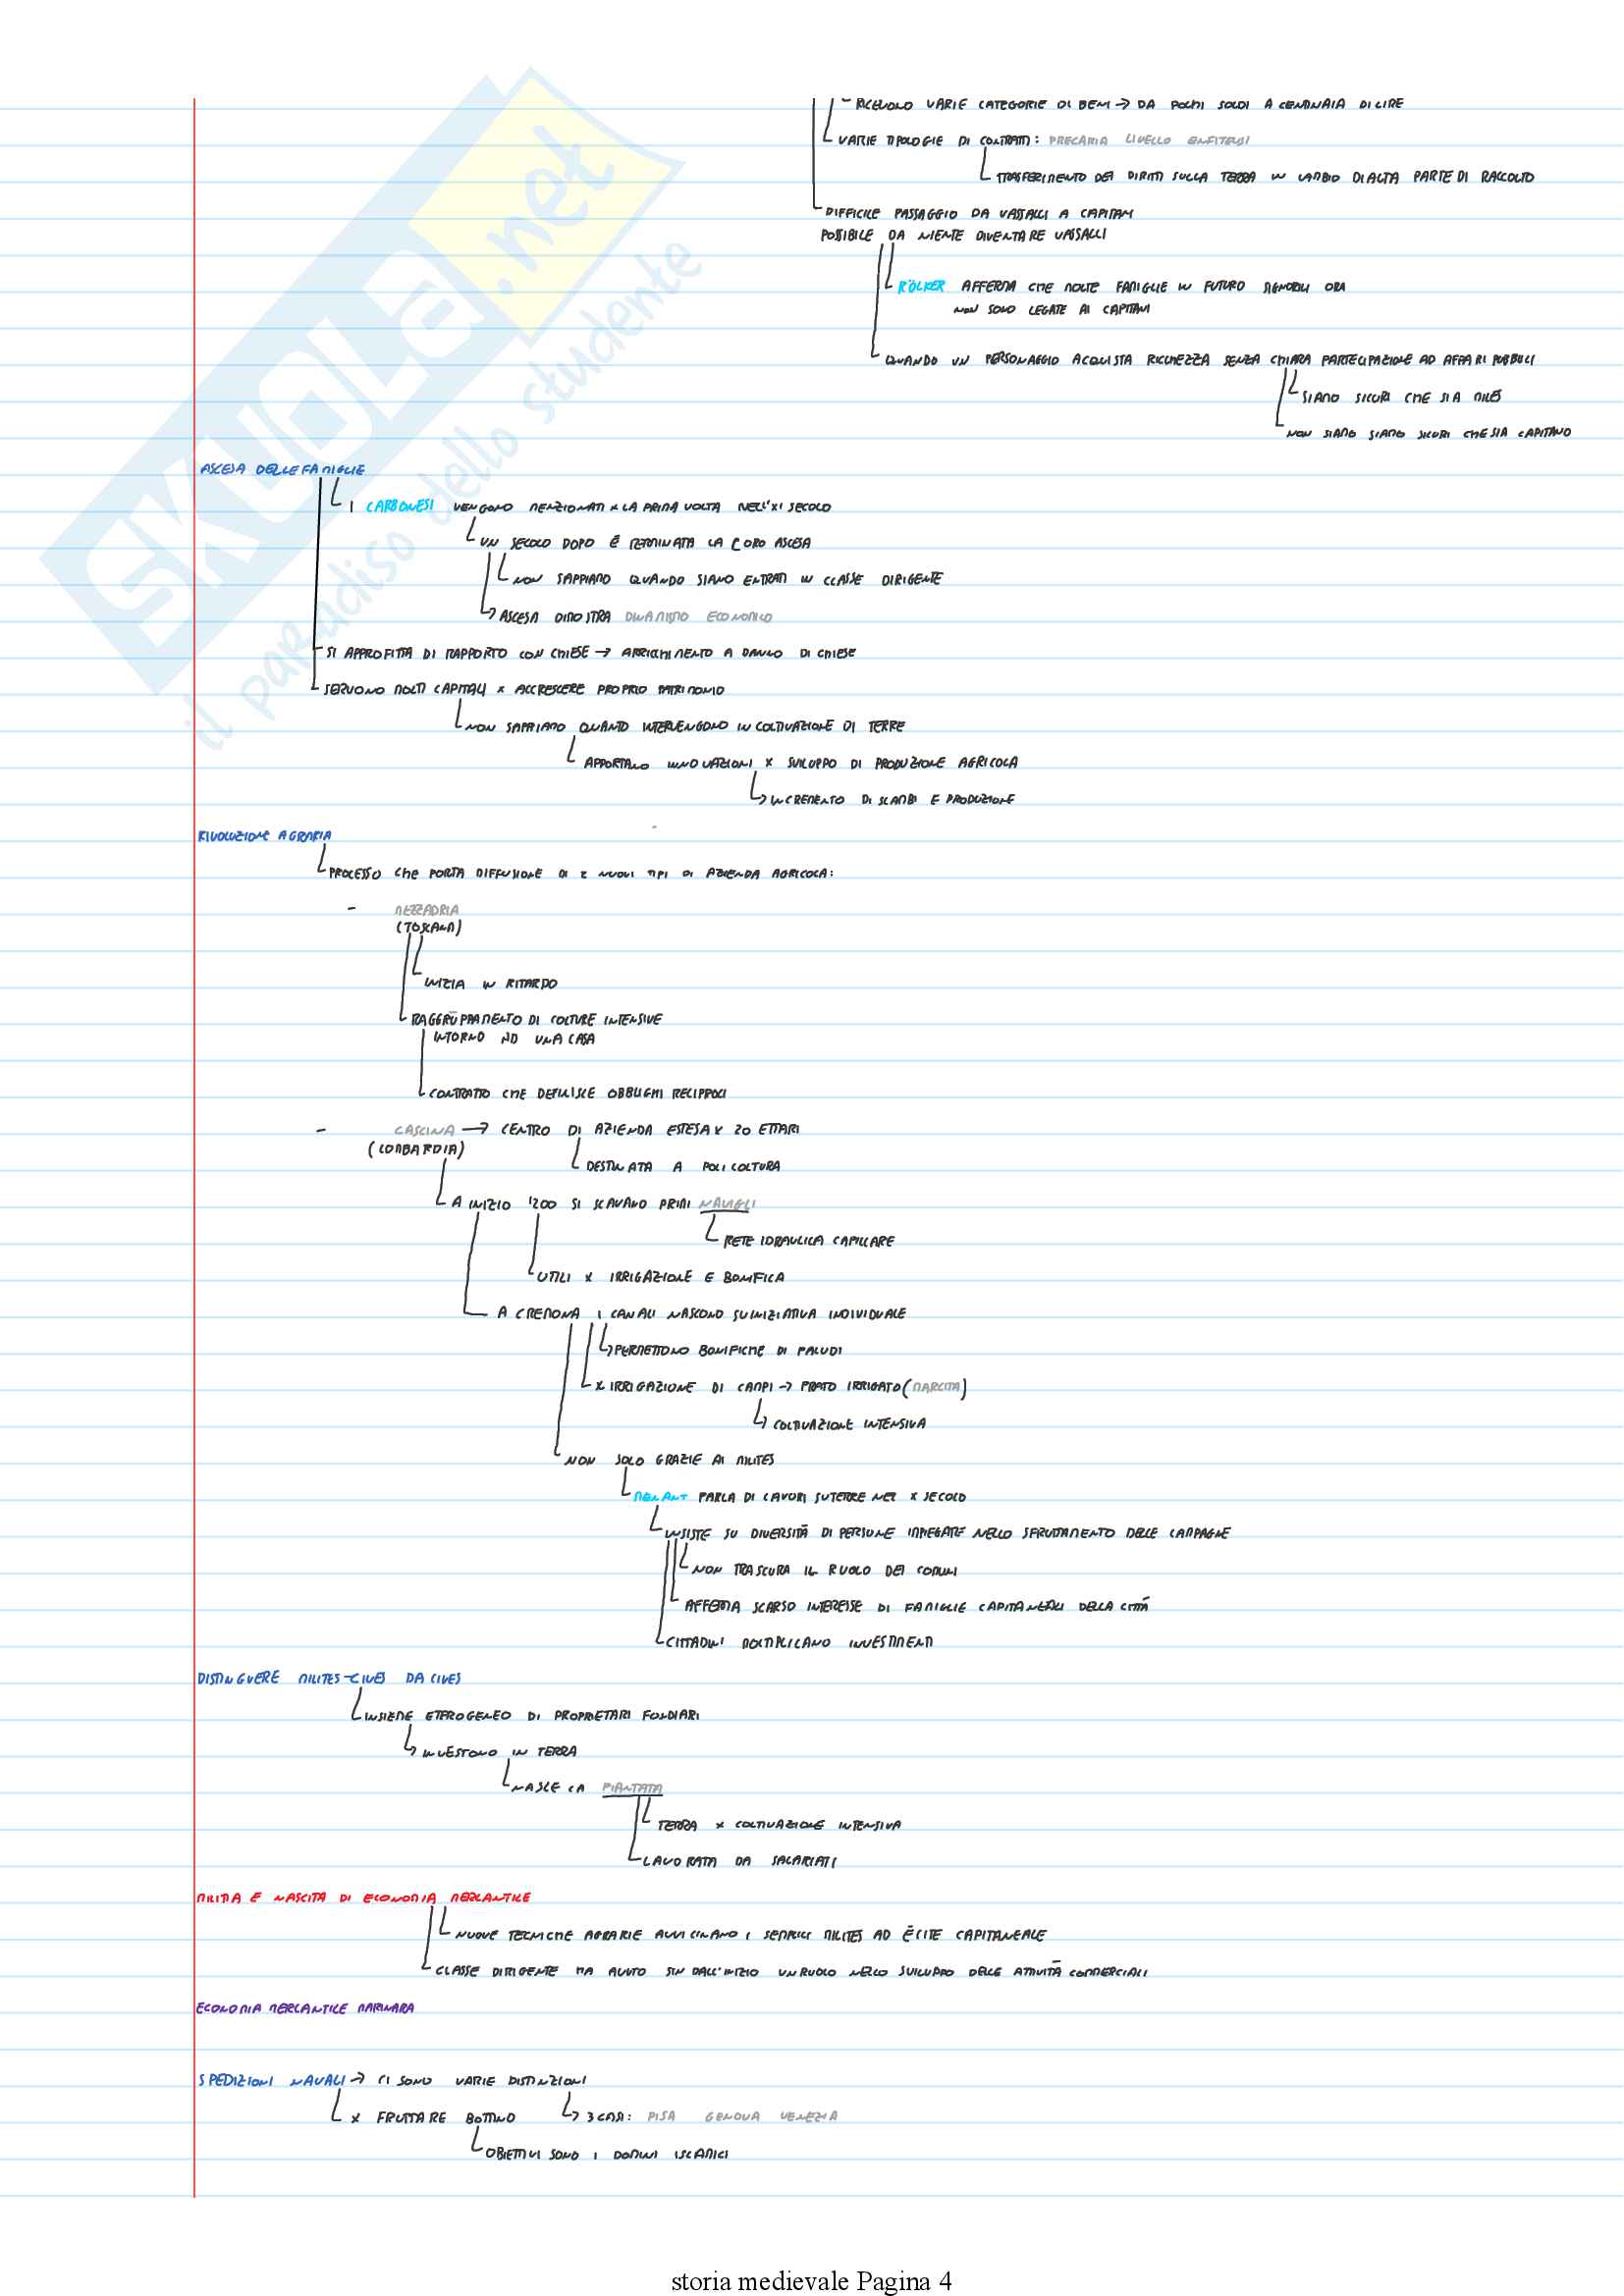 RICEVONO VARIE CATEGORIE DI BENI → DA POCHI SOLDI A CENTINAIA DI LIRE
VARIE TIPOLOGIE DI CONTRATTI: PRECARIA LIVELLO ENFITEUSI
TRASFERIMENTO DEI DIRITTI SULLA TERRA IN CAMBIO DI ALTA PARTE DI RACCOLTO
DIFFICILE PASSAGGIO DA VASSALLI A CAPITANI
POSSIBILE DA NIENTE DIVENTARE VASSALLI
RÖLKER AFFERMA CHE MOLTE FAMIGLIE IN FUTURO SIGNORILI ORA
NON SOLO LEGATE AI CAPITANI
QUANDO UN PERSONAGGIO ACQUISTA RICCHEZZA SENZA CHIARA PARTECIPAZIONE AD AFFARI PUBBLICI
SIAMO SICURI CHE SIA MILES
NON SIAMO SIAMO SICURI CHE SIA CAPITANO
ASCESA DELLE FAMIGLIE
I CARBONESI VENGONO MENZIONATI X LA PRIMA VOLTA NELL'XI SECOLO
UN SECOLO DOPO È TERMINATA LA LORO ASCESA
NON SAPPIAMO QUANDO SIANO ENTRATI IN CLASSE DIRIGENTE
→ ASCESA DIMOSTRA DINAMISMO ECONOMICO
SI APPROFITTA DI RAPPORTO CON CHIESE → ARRICCHIMENTO A DANNO DI CHIESE
SERVONO MOLTI CAPITALI X ACCRESCERE PROPRIO PATRIMONIO
NON SAPPIAMO QUANTO INTERVENGONO IN COLTIVAZIONE DI TERRE
APPORTANO INNOVAZIONI X SVILUPPO DI PRODUZIONE AGRICOLA
→ INCREMENTO DI SCAMBI E PRODUZIONE
RIVOLUZIONE AGRARIA
PROCESSO CHE PORTA DIFFUSIONE DI 2 NUOVI TIPI DI AZIENDA AGRICOLA:
- MEZZADRIA
(TOSCANA)
INIZIA IN RITARDO
RAGGRUPPAMENTO DI COLTURE INTENSIVE
INTORNO AD UNA CASA
CONTRATTO CHE DEFINISCE OBBLIGHI RECIPROCI
- CASCINA → CENTRO DI AZIENDA ESTESA X 20 ETTARI
(LOMBARDIA)
DESTINATA A POLICOLTURA
A INIZIO '200 SI SCAVANO PRIMI NAVIGLI
RETE IDRAULICA CAPILLARE
UTILI X IRRIGAZIONE E BONIFICA
A CREMONA I CANALI NASCONO SU INIZIATIVA INDIVIDUALE
→ PERMETTONO BONIFICHE DI PALUDI
X IRRIGAZIONE DI CAMPI → PRATO IRRIGATO (MARCITA)
→ COLTIVAZIONE INTENSIVA
NON SOLO GRAZIE AI MILITES
MENANT PARLA DI LAVORI SU TERRE NEL X SECOLO
INSISTE SU DIVERSITÀ DI PERSONE IMPIEGATE NELLO SFRUTTAMENTO DELLE CAMPAGNE
NON TRASCURA IL RUOLO DEI COMUNI
AFFERMA SCARSO INTERESSE DI FAMIGLIE CAPITANEALI DELLA CITTÀ
CITTADINI MOLTIPLICANO INVESTIMENTI
DISTINGUERE MILITES-CIVES DA CIVES
INSIEME ETEROGENEO DI PROPRIETARI FONDIARI
→ INVESTONO IN TERRA
NASCE LA PIANTATA
TERRA X COLTIVAZIONE INTENSIVA
LAVORATA DA SALARIATI
MILITIA E NASCITA DI ECONOMIA MERCANTILE
NUOVE TECNICHE AGRARIE AVVICINANO I SEMPLICI MILITES AD ÉLITE CAPITANEALE
CLASSE DIRIGENTE HA AVUTO SIN DALL'INIZIO UN RUOLO NELLO SVILUPPO DELLE ATTIVITÀ COMMERCIALI
ECONOMIA MERCANTILE MARINARA
SPEDIZIONI NAVALI → CI SONO VARIE DISTINZIONI
X FRUTTARE BOTTINO → 3 CASI: PISA GENOVA VENEZIA
OBIETTIVI SONO I DOMINI ISLAMICI
SKUOLA.net
il paradiso dello studente
storia medievale Pagina 4